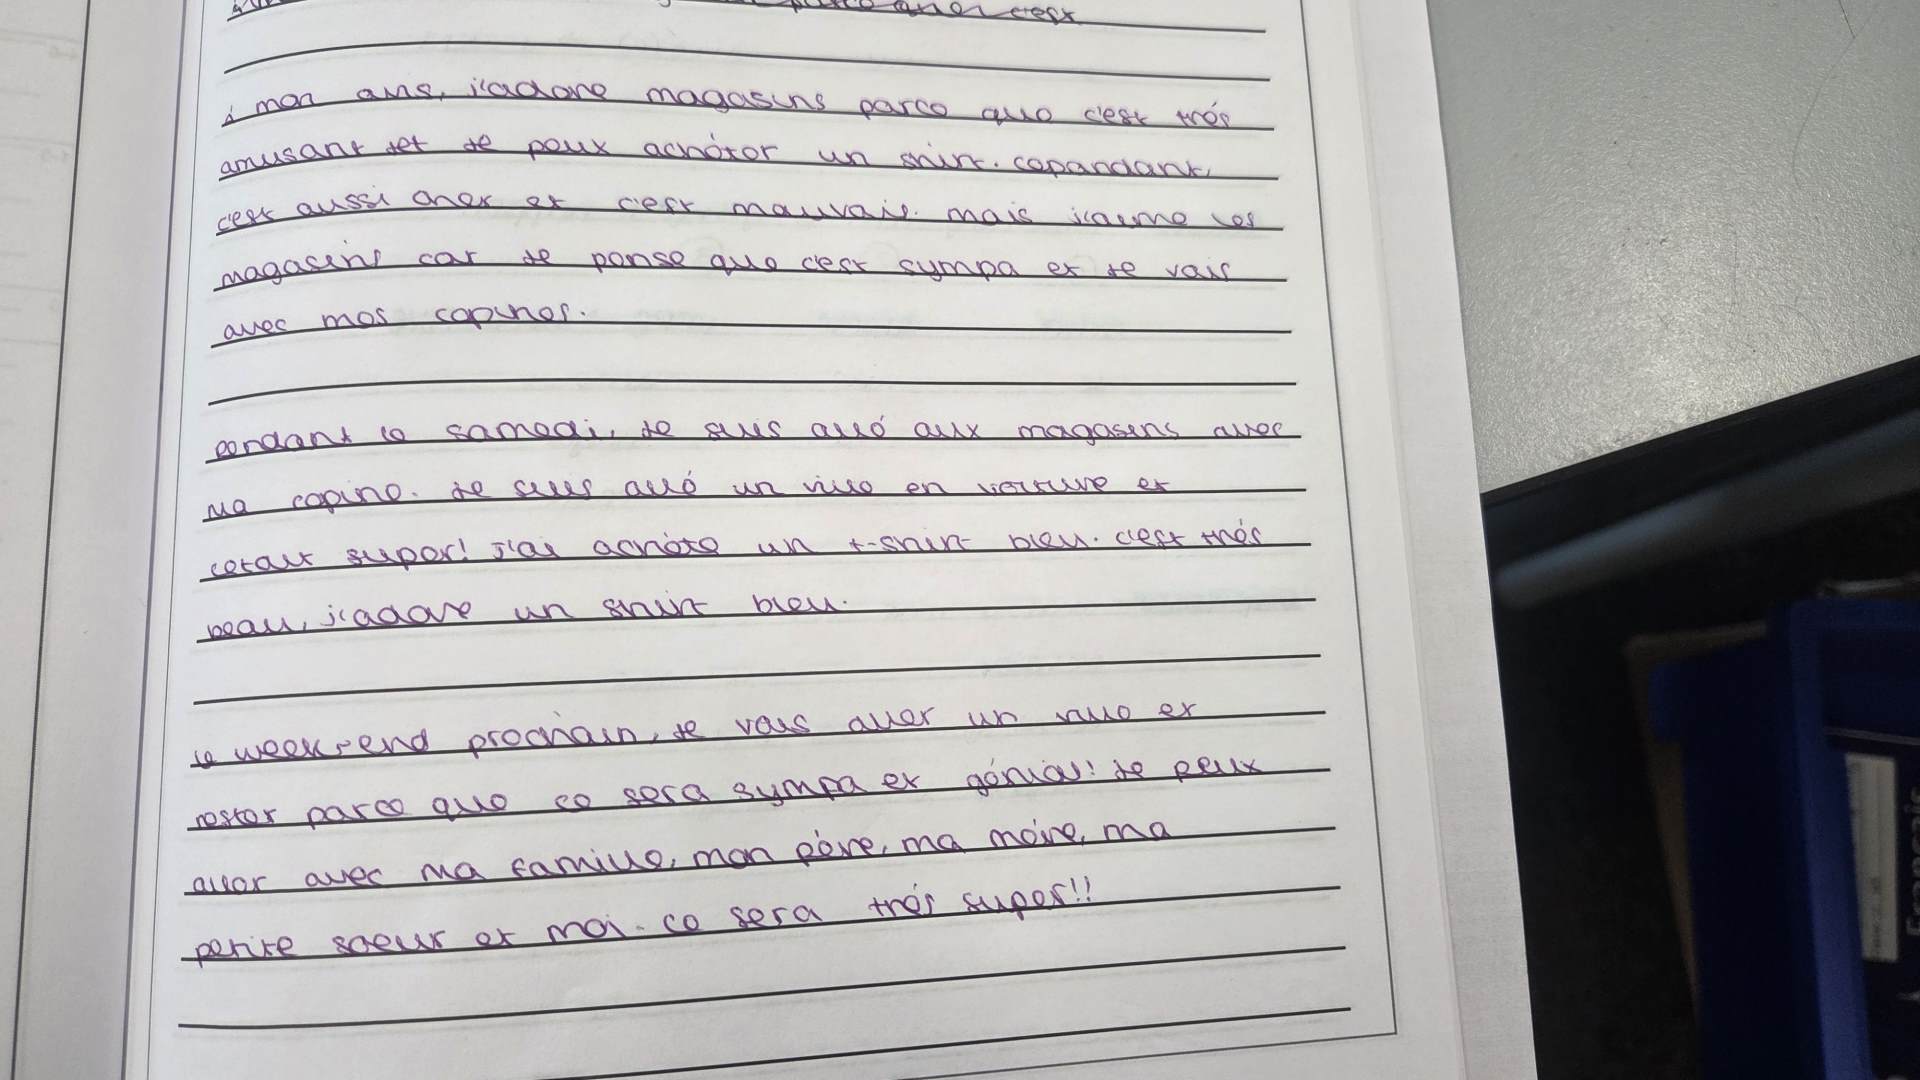 parce que c'est
à mon avis, j'adore magasins parce que c'est très
amusant et je peux achèter un shirt. cepandant,
c'est aussi cher et c'est mauvais. mais j'aime les
magasins car je pense que c'est sympa et je vais
avec mes copines.
pendant le samedi, je suis allé aux magasins avec
ma copine. je suis allé un ville en voiture et
cetait super! J'ai achète un t-shirt bleu. c'est très
beau, j'adore un shirt bleu.
le week-end prochain, je vais aller un ville et
rester parce que ce sera sympa et génial! je peux
aller avec ma famille, mon père, ma mère, ma
petite soeur et moi. ce sera très super!!
Français